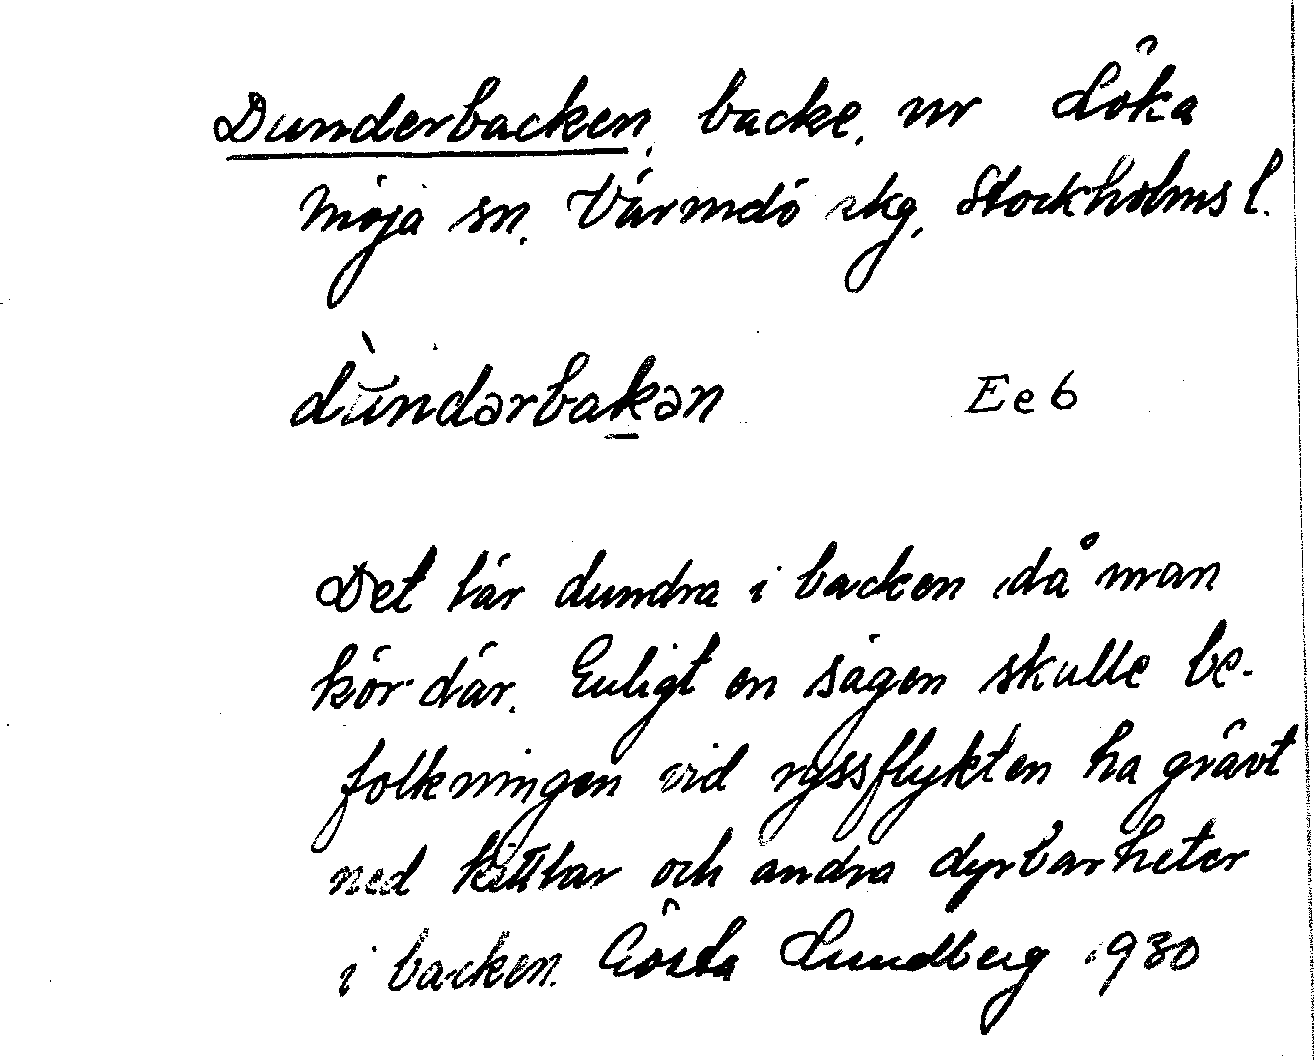 Dunderbacken, backe, nr Löka
Möja sn. Värmdö skg, Stockholms l.
dùndərbakən Ee6
Det lär dundra i backen då man
kör där. Enligt en sägen skulle be-
folkningen vid ryssflykten ha grävt
ned kittlar och andra dyrbarheter
i backen. Gösta Lundberg 1930